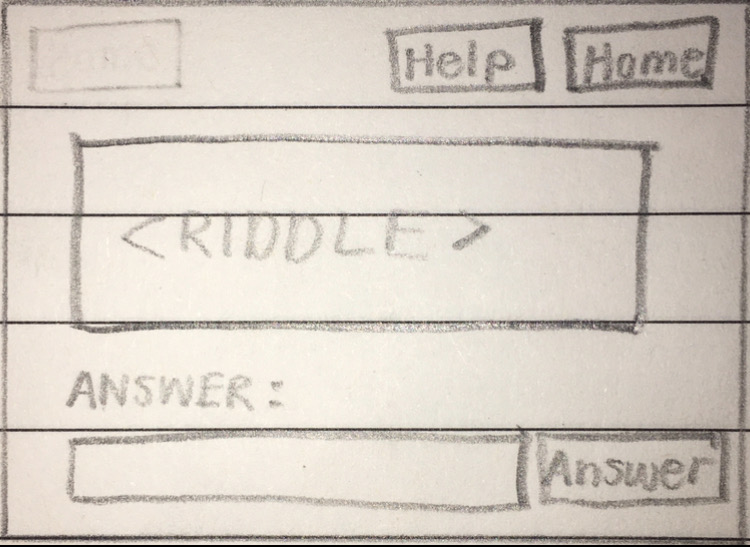 Help Home
<RIDDLE>
ANSWER:
Answer